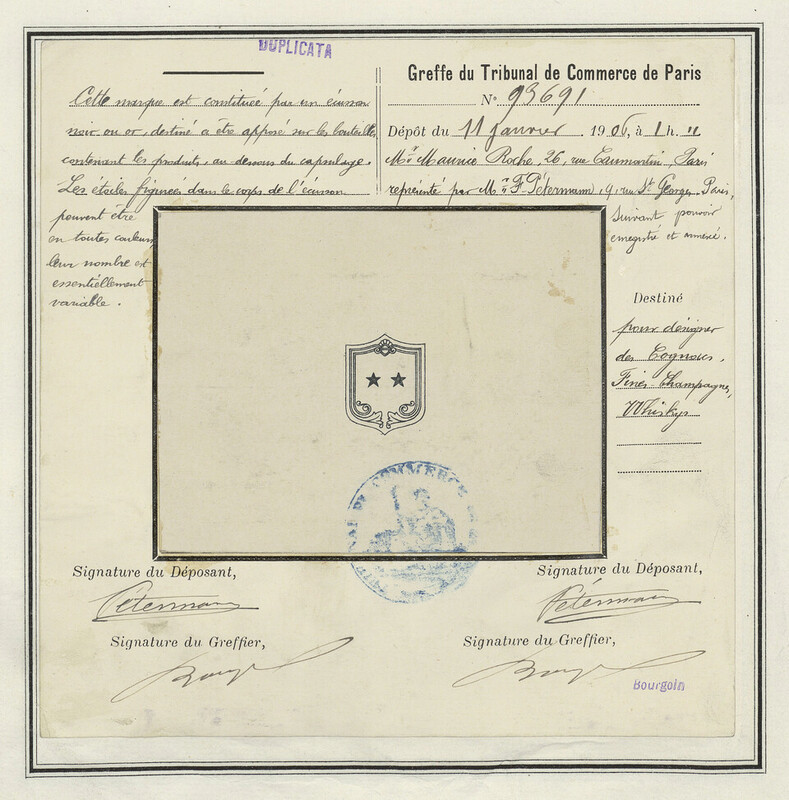 DUPLICATA
Cette marque est constituée par un écusson
noir ou or, destiné a être apposé sur les bouteilles
contenant les produits, au-dessous du capsulage.
Les étoiles figurées dans le corps de l'écusson
peuvent être
en toutes couleurs,
leur nombre est
essentiellement
variable.
Greffe du Tribunal de Commerce de Paris
No 93691
Dépôt du 11 janvier . 1906, à 1 h. "
Mr Maurice Roche, 26, rue Caumartin, Paris
représenté par Mr F. Pétermann, 9, rue St Georges, Paris,
suivant pouvoir
enregistré et annexé.
Destiné
pour désigner
des Cognacs,
Fines-Champagnes,
Whiskys
COMMERCE
Signature du Déposant,
Pétermann
Signature du Greffier,
Signature du Déposant,
Pétermann
Signature du Greffier,
Bourgoin